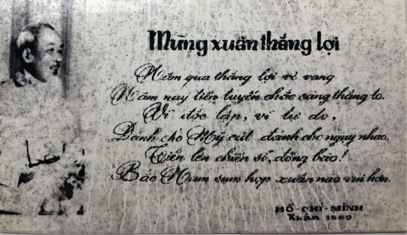 Mừng xuân thắng lợi
Năm qua thắng lợi vẻ vang
Năm nay tiền tuyến chắc càng thắng to.
Vì độc lập, vì tự do,
Đánh cho Mỹ cút, đánh cho ngụy nhào.
Tiến lên chiến sĩ, đồng bào!
Bắc Nam sum họp xuân nào vui hơn.
HỒ-CHÍ-MINH
Xuân 1969